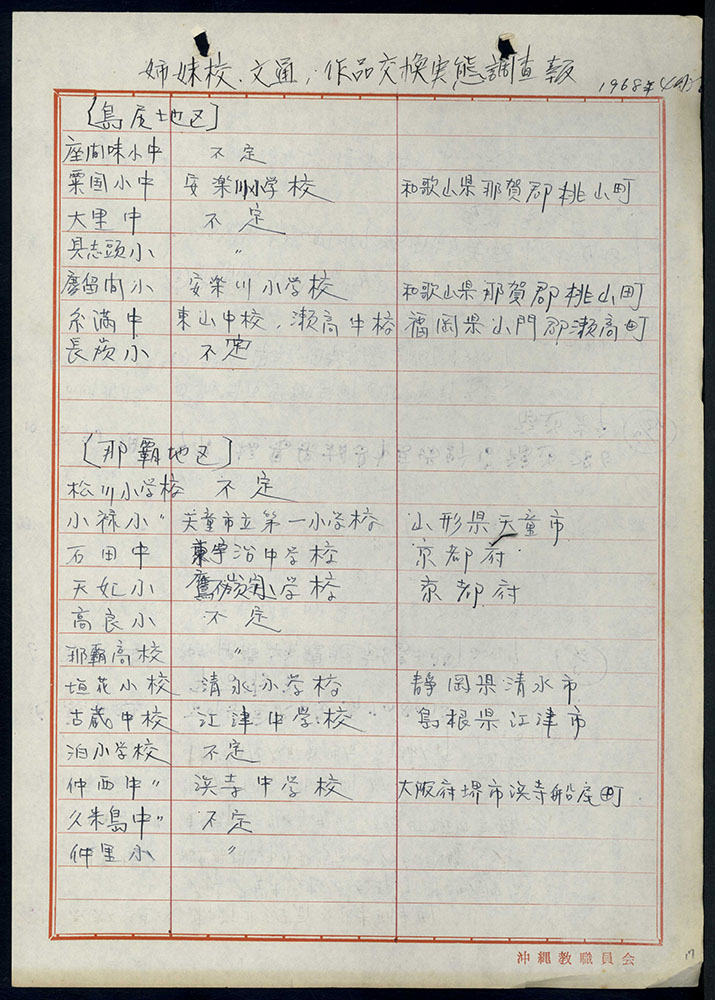 姉妹校、文通、作品交換実態調査報
1968年4月
〔島尻地区〕
座間味小中 不定
粟国小中 安楽川小学校 和歌山県那賀郡桃山町
大里中 不定
具志頭小 〃
慶留間小 安楽川小学校 和歌山県那賀郡桃山町
糸満中 東山中校、瀬高中校 福岡県山門郡瀬高町
長嶺小 不定
〔那覇地区〕
松川小学校 不定
小禄小〃 天童市立第一小学校 山形県天童市
石田中 東宇治中学校 京都府
天妃小 小学校 京都府
高良小 不定
那覇高校 〃
垣花小校 清水小学校 静岡県清水市
古蔵中校 江津中学校 島根県江津市
泊小学校 不定
仲西中〃 浜寺中学校 大阪府堺市浜寺船尾町
久米島中〃 不定
仲里小 〃
沖縄教職員会
17